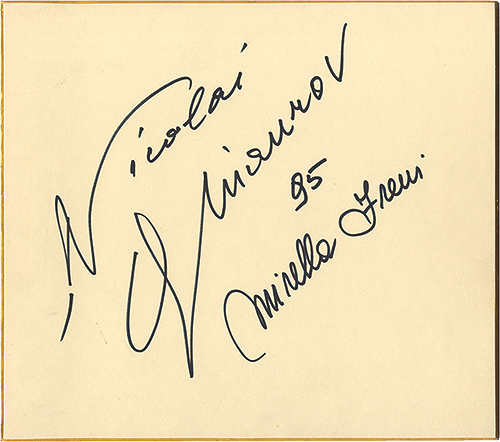 Nicolai
Ghiaurov
95
Mirella Freni